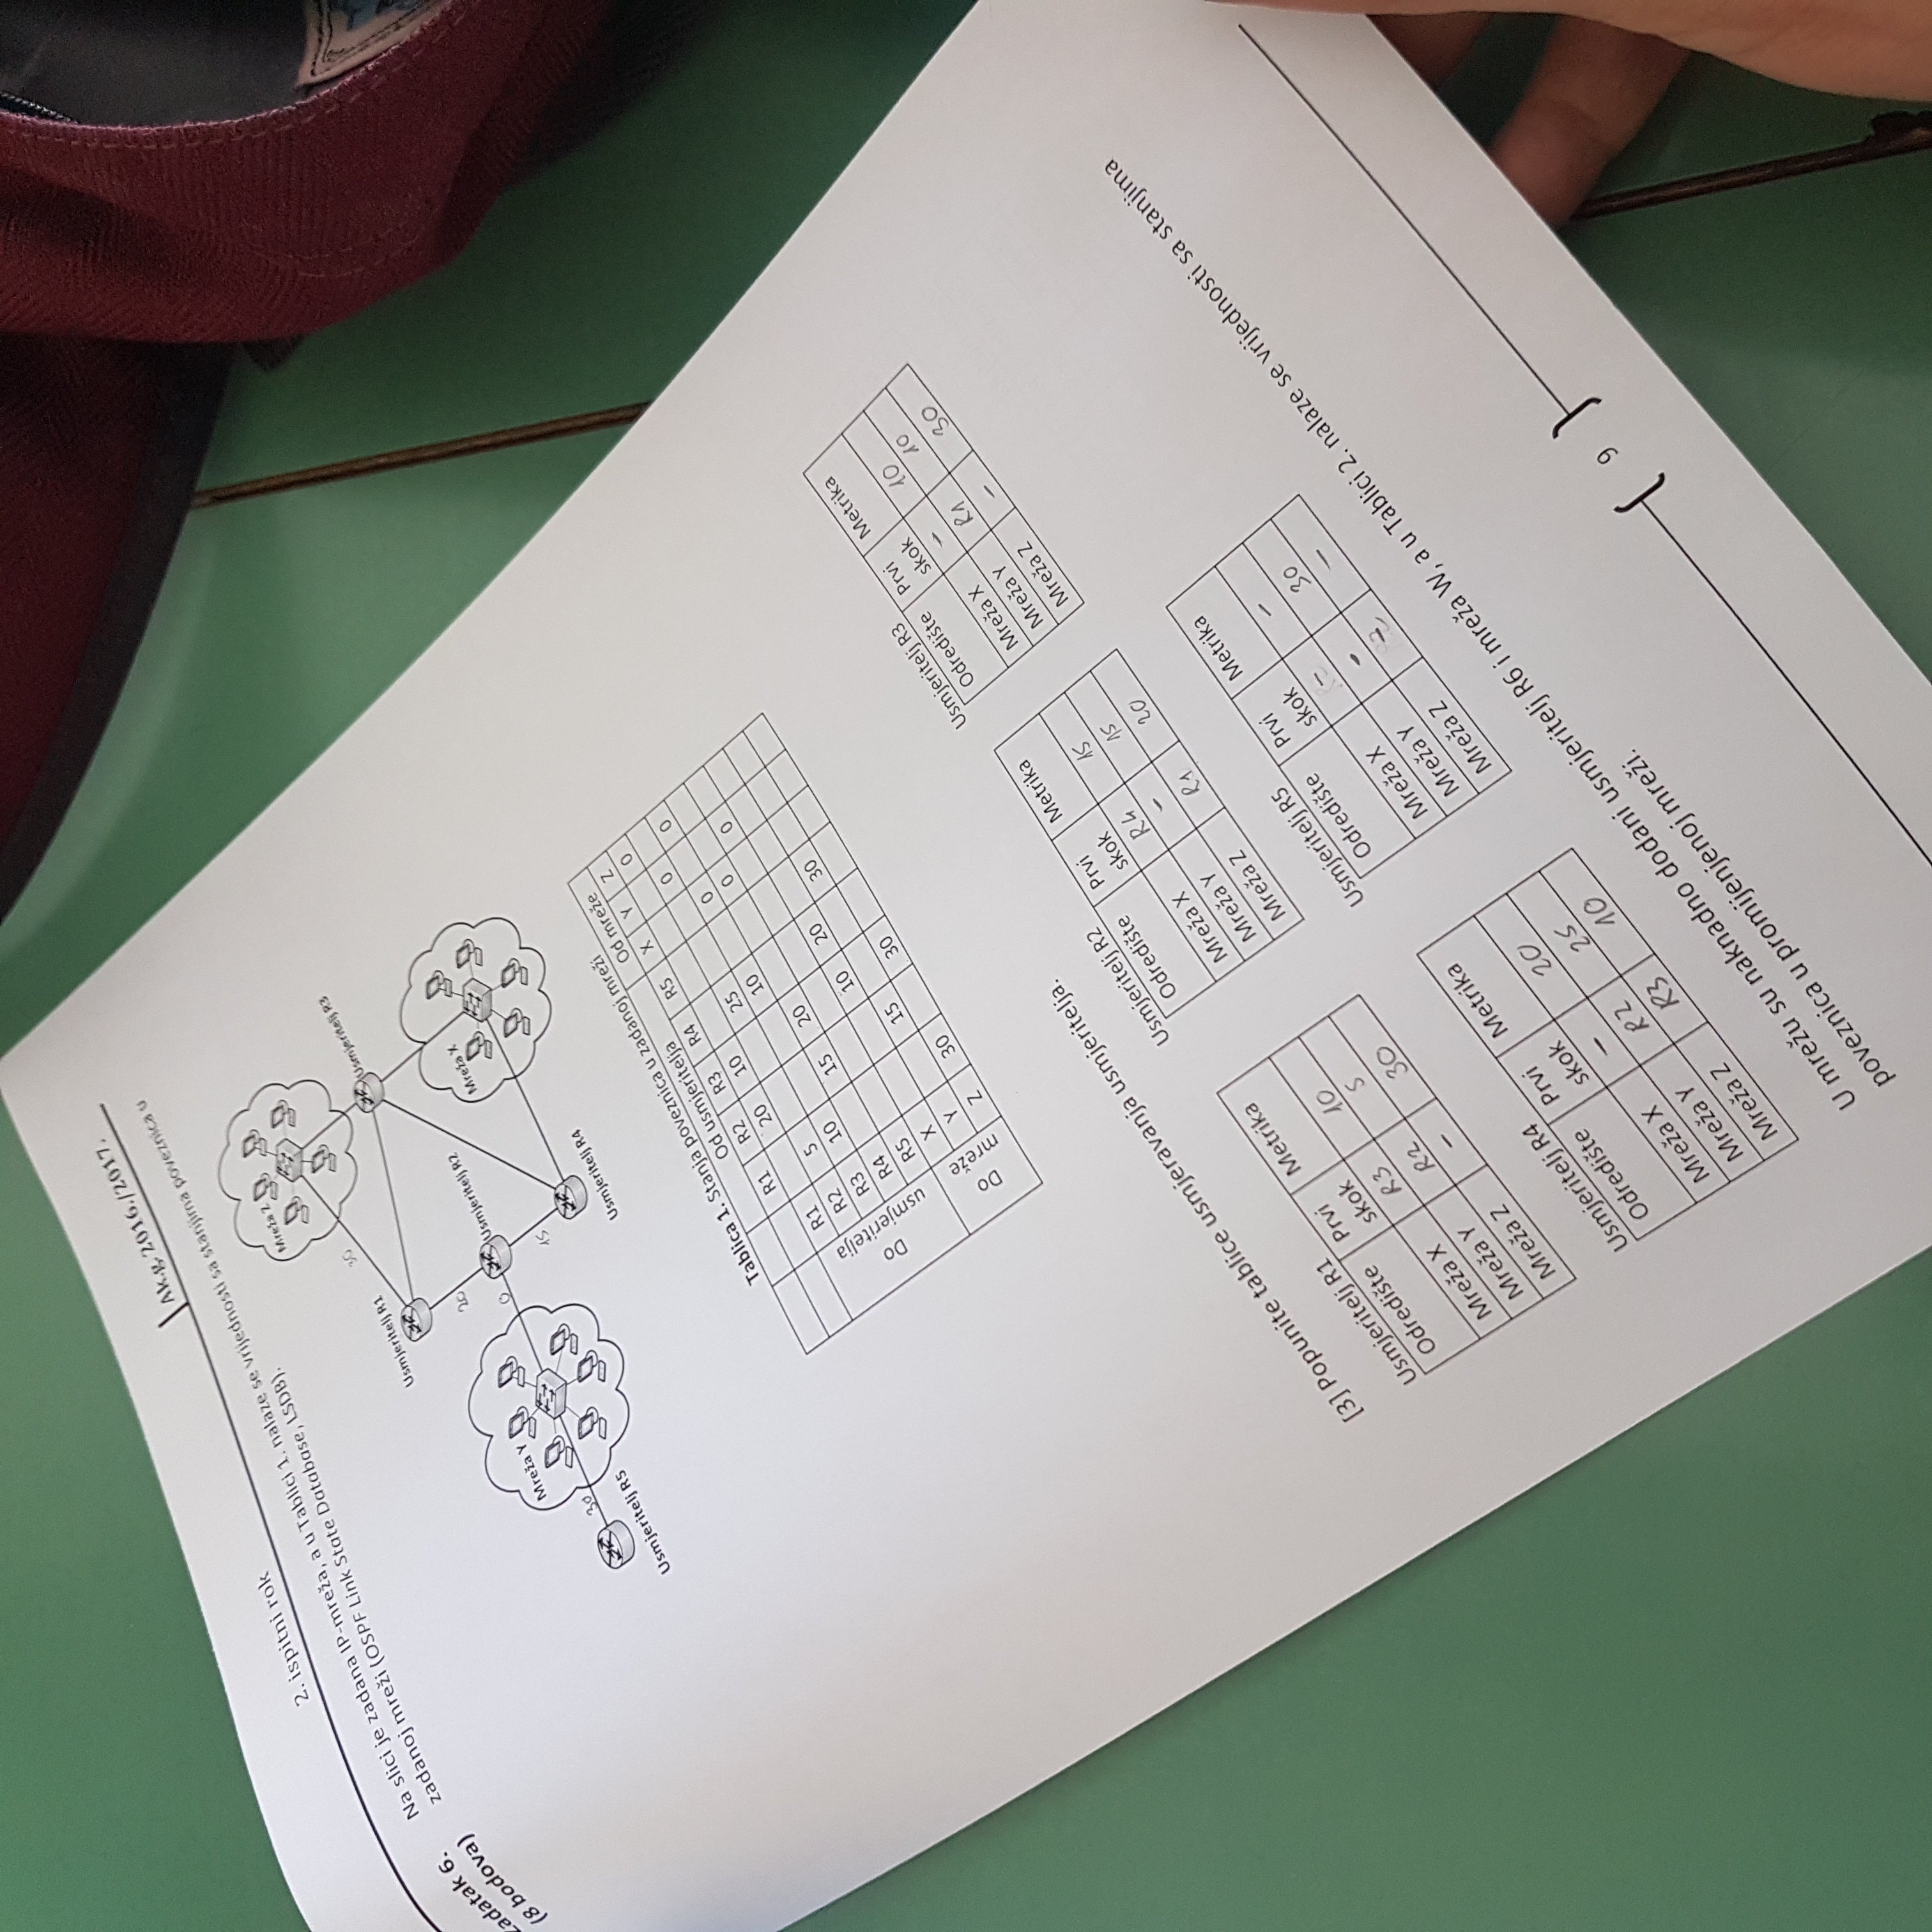 2. ispitni rok
Ak.g. 2016./2017.
Zadatak 6.
(8 bodova)
Na slici je zadana IP-mreža, a u Tablici 1. nalaze se vrijednosti sa stanjima poveznica u
zadanoj mreži (OSPF Link State Database, LSDB).
Mreža Z
30
Usmjeritelj R3
Usmjeritelj R1
20
Usmjeritelj R2
Mreža X
Mreža Y
0
15
30
Usmjeritelj R4
Usmjeritelj R5
Tablica 1. Stanja poveznica u zadanoj mreži
Od usmjeritelja Od mreže
R1 R2 R3 R4 R5 X Y Z
Do usmjeritelja
R1 20 10 0
R2 5 25 0
R3 10 10 0 0
R4 15 20 0
R5 0
Do mreže
X 10 20
Y 15 30
Z 30 30
[3] Popunite tablice usmjeravanja usmjeritelja.
Usmjeritelj R1
Odredište Prvi skok Metrika
Mreža X R3 10
Mreža Y R2 5
Mreža Z - 30
Usmjeritelj R2
Odredište Prvi skok Metrika
Mreža X R4 15
Mreža Y - 15
Mreža Z R1 20
Usmjeritelj R3
Odredište Prvi skok Metrika
Mreža X - 10
Mreža Y R1 10
Mreža Z - 30
Usmjeritelj R4
Odredište Prvi skok Metrika
Mreža X - 20
Mreža Y R2 25
Mreža Z R3 10
Usmjeritelj R5
Odredište Prvi skok Metrika
Mreža X - -
Mreža Y - 30
Mreža Z - -
U mrežu su naknadno dodani usmjeritelj R6 i mreža W, a u Tablici 2. nalaze se vrijednosti sa stanjima
poveznica u promijenjenoj mreži.
9